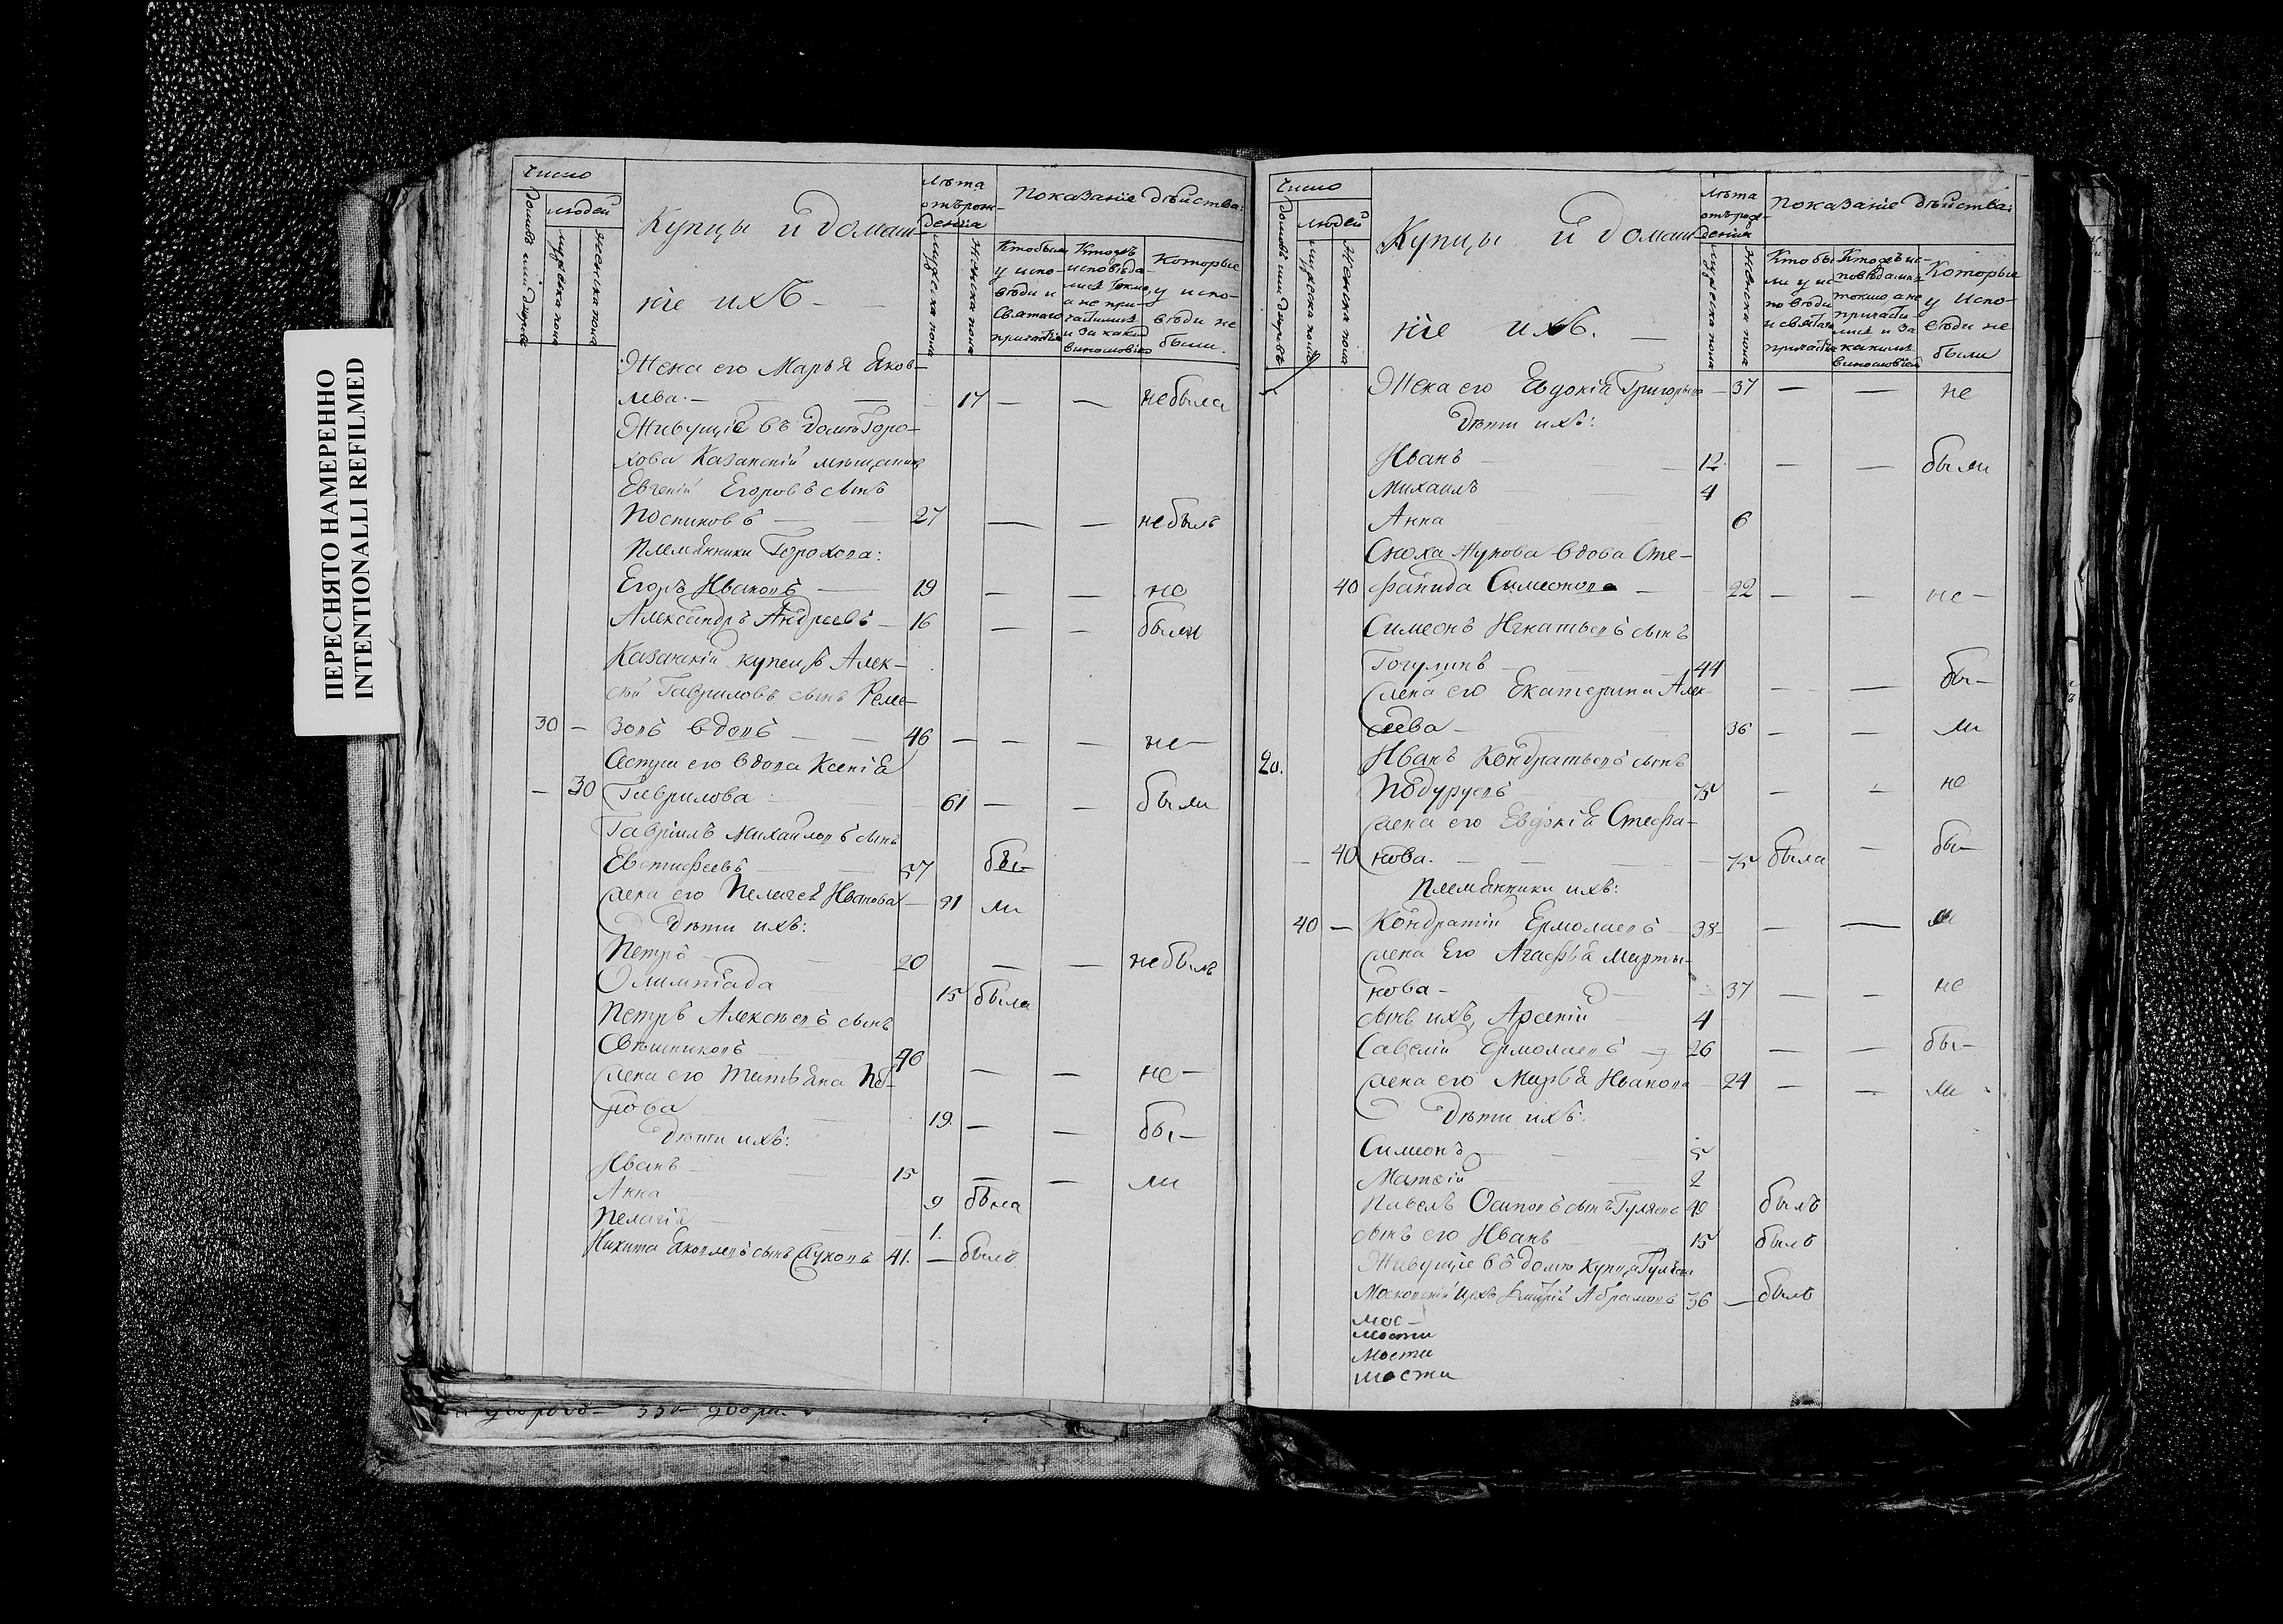 ПЕРЕСНЯТО НАМЕРЕННО
INTENTIONALLI REFILMED
Число
домовъ или дворовъ
людей
мужеска пола
женска пола
Купцы и домаш-
ніе ихъ
лѣта отъ рож-
денія
мужеска пола
женска пола
Показаніе дѣйства:
Кто были
у испо-
вѣди и
святаго
причастія
Кто же
исповѣда-
лися токмо,
а не при-
частились
и за какимъ
винословіемъ
Которые
у испо-
вѣди не
были.
Жена его Марья Яков-
лева 17 — — не была
Живущіе въ домѣ Горо-
хова Казанскій мѣщанинъ
Евгеній Егоровъ сынъ
Посниковъ — 27 — — не былъ
Племянники Горохова:
Егоръ Ивановъ — 19 — — не
Александръ Андреевъ — 16 — — были
Казанскій купецъ Алек-
сѣй Гавриловъ сынъ Реме-
30 — зовъ вдовъ — — 46 — — — не —
Сестра его вдова Ксенія
— 30 Гаврилова 61 — — были
Гавріилъ Михайловъ сынъ
Евстифеевъ 37 бы-
жена его Пелагея Иванова — 31 ли
Дѣти ихъ:
Петръ 20 — — не былъ
Олимпіада 15 была
Петръ Алексѣевъ сынъ
Свѣшниковъ 46
жена его Татьяна — — не —
19. — — бы —
Дѣти ихъ:
Иванъ 15 — — ли
Анна 9 была
Пелагія 1.
Никита Яковлевъ сынъ 41. — былъ
Число
домовъ или дворовъ
людей
мужеска пола
женска пола
Купцы и домаш-
ніе ихъ. —
лѣта
отъ рож-
денія
мужеска пола
женска пола
Показаніе дѣйства:
Кто бы-
ли у ис-
повѣди
и святаго
причастія
Кто же ис-
повѣдались
токмо, а не
причасти-
лися и за
какимъ
винословіемъ
Которые
у испо-
вѣди не
были
Жена его Евдокія Григорьева — 37 — — не
Дѣти ихъ:
Иванъ — 12. — — были
Михаилъ 4
Анна 6
Сноха Жукова вдова Сте-
40 фанида Симеонова — 22 — — не —
Симеонъ Игнатьевъ сынъ
Гогулинъ 44
жена его Екатерина Алек- — — бы —
сѣева — 36 — — ли
20. Иванъ Кондратьевъ сынъ
Подуруевъ 75 — — не
жена его Евдокія Стефа-
— 40 нова. — 75 была — бы-
Племянники ихъ:
40 — Кондратій Ермолаевъ — 38 — — ли
жена его Агафья Марты-
нова — 37 — — не
сынъ ихъ, Арсеній 4
Савелій Ермолаевъ — 26 — — бы —
жена его Марья Иванова — 24 — — ли
Дѣти ихъ:
Симеонъ 5
Матвій 2
Павелъ Осиповъ сынъ Гуляевъ 49 былъ
сынъ его Иванъ 15 былъ
Живущіе въ домѣ купца Гуляева
Московскій цехъ Дмитрій Абрамовъ 36 — былъ
мос-
мости
мости
мости